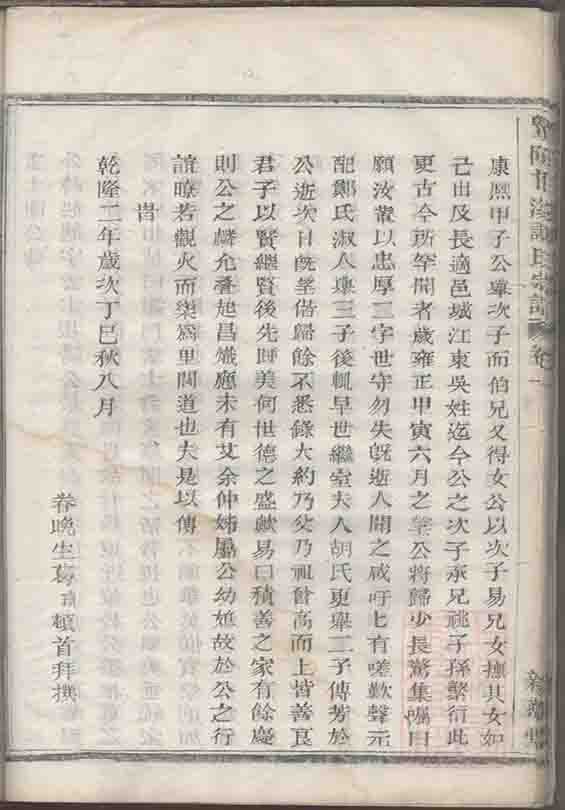 康熙甲子公舉次子而伯兄又得女公以次子易兄女撫其女如
己由及長適邑城江東吳姓迄今公之次子承兄祧子孫繫衍此
更古今所罕聞者歲雍正甲寅六月之望公將歸少長驚集囑曰
願汝輩以忠厚二字世守勿失既逝人聞之咸吁匕有嗟歎聲元
配鄭氏淑人舉三子後輒早世繼室夫人胡氏更舉二子傳芳於
公逝次日既望偕歸餘不悉錄大約乃父乃祖曾高而上皆善良
君子以賢繼賢後先匹美何世德之盛歟易曰積善之家有餘慶
則公之麟允螽起昌熾應未有艾余仲姊屬公幼媳故於公之行
誼瞭若觀火而樂為里閭道也夫是以傳
旹
乾隆二年歲次丁巳秋八月
眷晚生葛 頓首拜撰